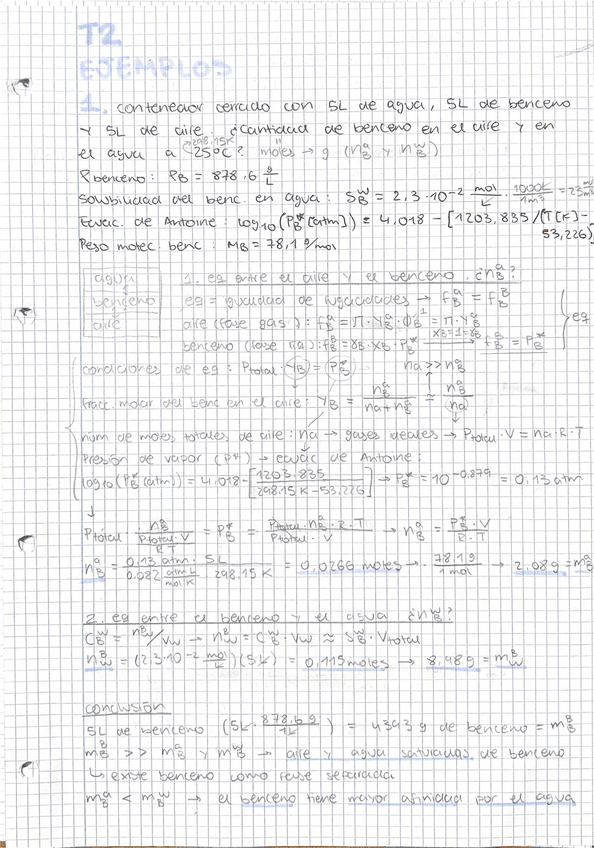 T2
EJEMPLOS
1. contenedor cerrado con 5L de agua, 5L de benceno
y 5L de aire. ¿Cantidad de benceno en el aire y en
298.15K
el agua a 25ºC? moles → g (n_B^a y n_B^w)
ρbenceno: ρ_B = 878,6 g/L
Solubilidad del benc. en agua: S_B^w = 2,3·10^-2 mol/L · 1000L/1m³ = 23 mol/m³
Ecuac. de Antoine: log10(P_B^*[atm]) = 4,018 - [1203,835/(T[K]-
53,226)]
Peso molec. benc: M_B = 78,1 g/mol
agua
benceno
aire
1. eq entre el aire y el benceno. ¿n_B^a?
eq = igualdad de fugacidades → f_B^a = f_B^B
aire (fase gas): f_B^a = Π·Y_B^a·ϕ_B^a = Π·Y_B^a
benceno (fase líq): f_B^B = γ_B·X_B·P_B^* → X_B=1=γ_B f_B^B = P_B^*
eq
condiciones de eq: Ptotal·Y_B = P_B^* na >> n_B^a
fracc. molar del benc en el aire: Y_B = n_B^a/(na+n_B^a) ≈ n_B^a/na
num de moles totales de aire: na → gases ideales → Ptotal·V = na·R·T
Presión de vapor (P*) → ecuac de Antoine:
log10(P_B^*(atm)) = 4,018 - [1203,835/(298,15K-53,226)] → P_B^* = 10^-0.879 = 0,13 atm
↓
Ptotal · n_B^a/(Ptotal·V/R·T) = P_B^* = Ptotal·n_B^a·R·T/(Ptotal·V) → n_B^a = P_B^*·V/(R·T)
n_B^a = 0,13 atm · 5L/(0.082 atm·L/(mol·K) · 298,15K) = 0,0266 moles → · 78,1g/1mol → 2,08g = m_B^a
2. eq entre el benceno y el agua ¿n_B^w?
C_B^w = n_B^w/Vw → n_w^B = C_B^w·Vw ≈ S_B^w·Vtotal
n_w^B = (2,3·10^-2 mol/L)(5L) = 0,115moles → 8,98g = m_w^B
conclusión
5L de benceno (5L · 878,6g/1L) = 4393g de benceno = m_B^B
m_B^B >> m_B^a y m_B^w → aire y agua saturadas de benceno
↳ existe benceno como fase separada
m_B^a < m_B^w → el benceno tiene mayor afinidad por el agua